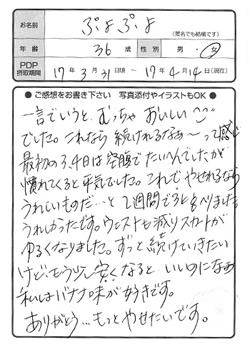 お名前 ぷよぷよ
(匿名でも結構です)
年齢 36歳 性別 男・女
PDP摂取期間 17年3月31日頃～17年4月14日(現在)
●ご感想をお書き下さい 写真添付やイラストもOK●
一言でいうと、むっちゃおいしい
でした。これなら続けれるなぁ～って感じ
最初の3.4日は空腹でたいへんでしたが
慣れてくると平気でした。これでやせれるなら
うれしいものだ…と2週間で3kgへりました
うれしかったです。ウエストも減りスカートが
ゆるくなりました。ずっと続けていきたい
けどもう少し安くなるといいのになぁ
私はバナナ味が好きです。
ありがとう…もっとやせたいです。